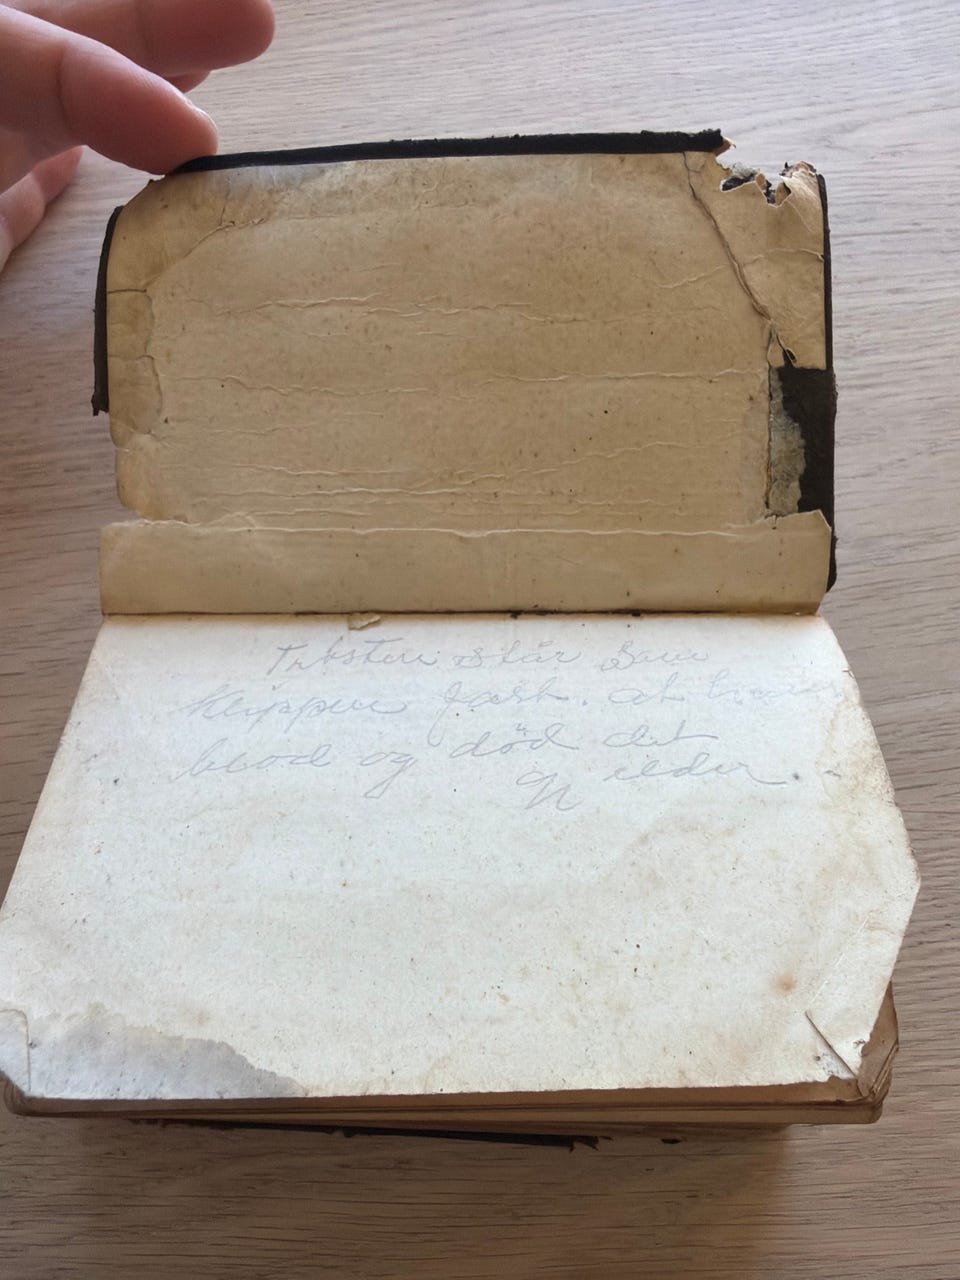 Trøsten står som
klippen fast, at hans
blod og død det
gilder